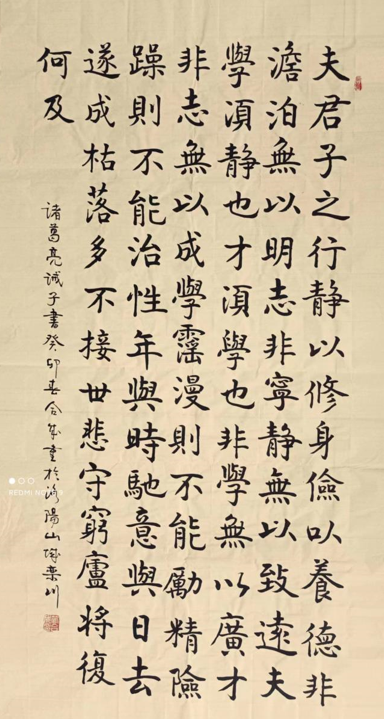 夫君子之行静以修身儉以養德非
澹泊無以明志非寧静無以致遠夫
學湏静也才湏學也非學無以廣才
非志無以成學漫則不能勵精險
躁則不能治性年與時馳意與日去
遂成枯落多不接世悲守窮廬將復
何及
諸葛亮誡子書癸卯春於洛陽山城欒川
REDMI